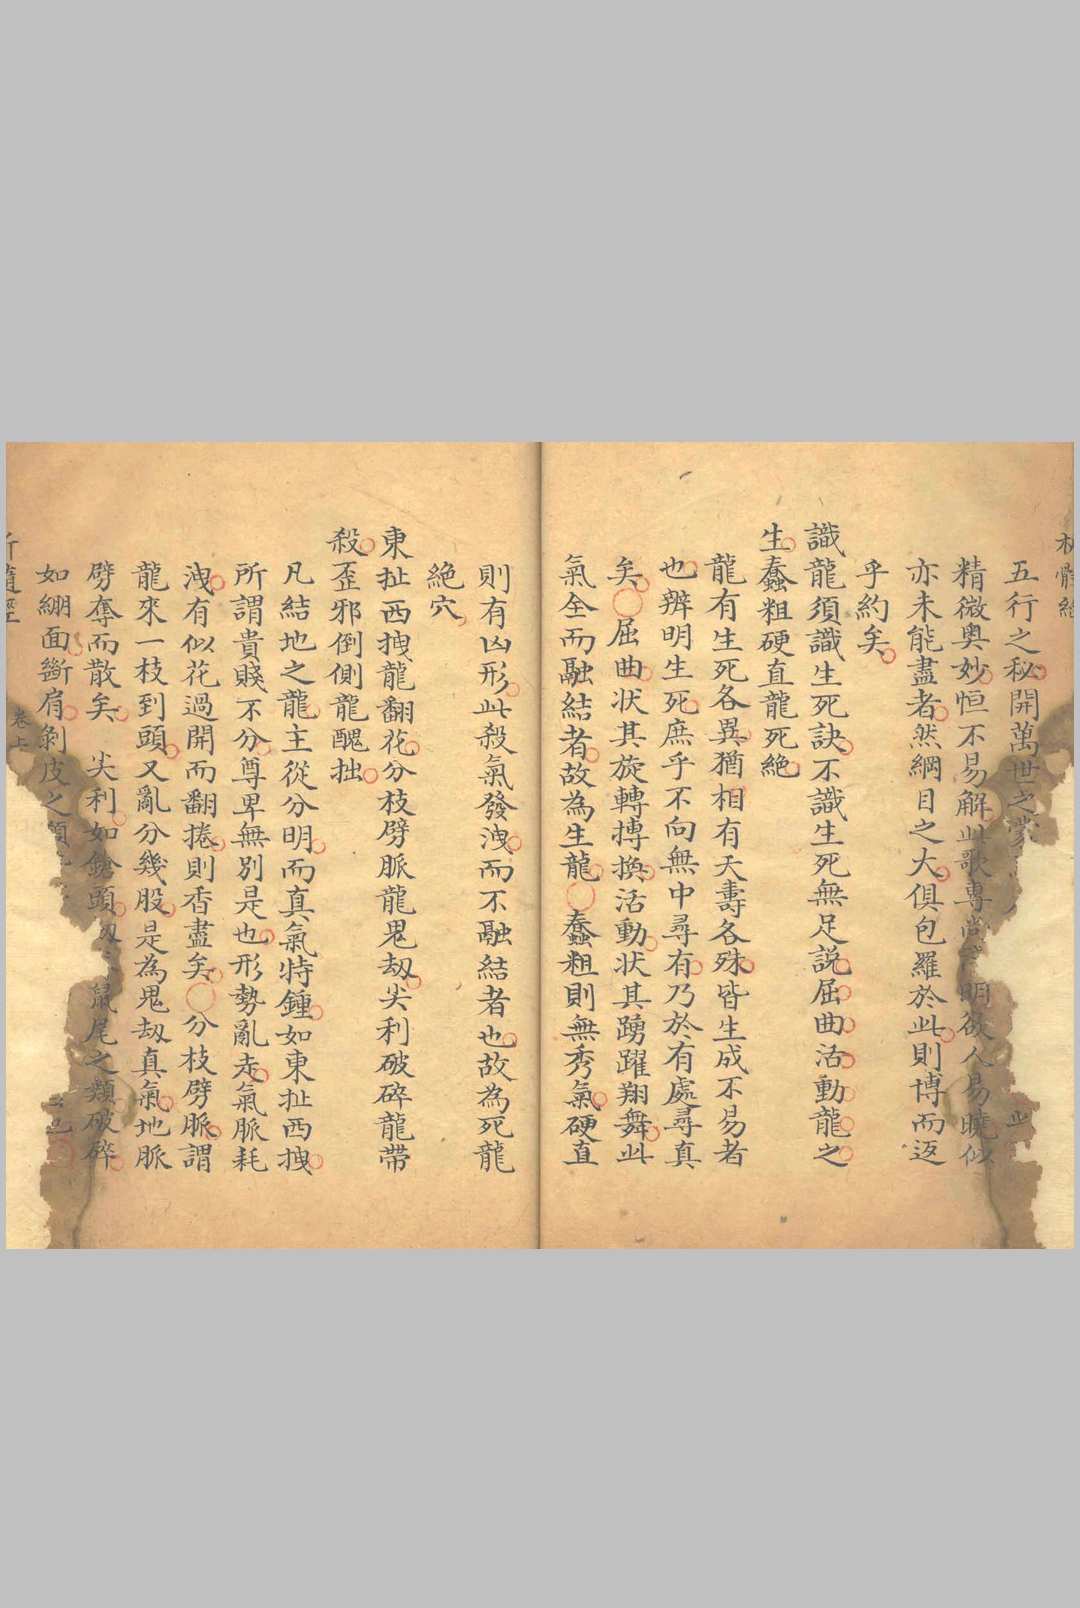 五行之秘開萬世之蒙
精微奧妙恒不易解此歌專尚明欲人易曉似
亦未能盡者然綱目之大俱包羅於此則博而返
乎約矣
識龍須識生死訣不識生死無足説屈曲活動龍之
生蠢粗硬直龍死絶
龍有生死各異猶相有夭壽各殊皆生成不易者
也辨明生死庶乎不向無中尋有乃於有處尋真
矣屈曲状其旋轉摶換活動状其踴躍翔舞此
氣全而融結者故為生龍蠢粗則無秀氣硬直
則有凶形此殺氣發洩而不融結者也故為死龍
絶穴
東扯西拽龍翻花分枝劈脈龍鬼刼尖利破碎龍帶
殺歪邪倒側龍醜拙
凡結地之龍主從分明而真氣特鍾如東扯西拽
所謂貴賤不分尊卑無別是也形勢亂走氣脈耗
洩有似花過開而翻捲則香盡矣分枝劈脈謂
龍來一枝到頭又亂分幾股是為鬼刼真氣地脈
劈奪而散矣尖利如鎗頭鼠尾之類破碎
如綳面斷肩剝皮之類也
卷上